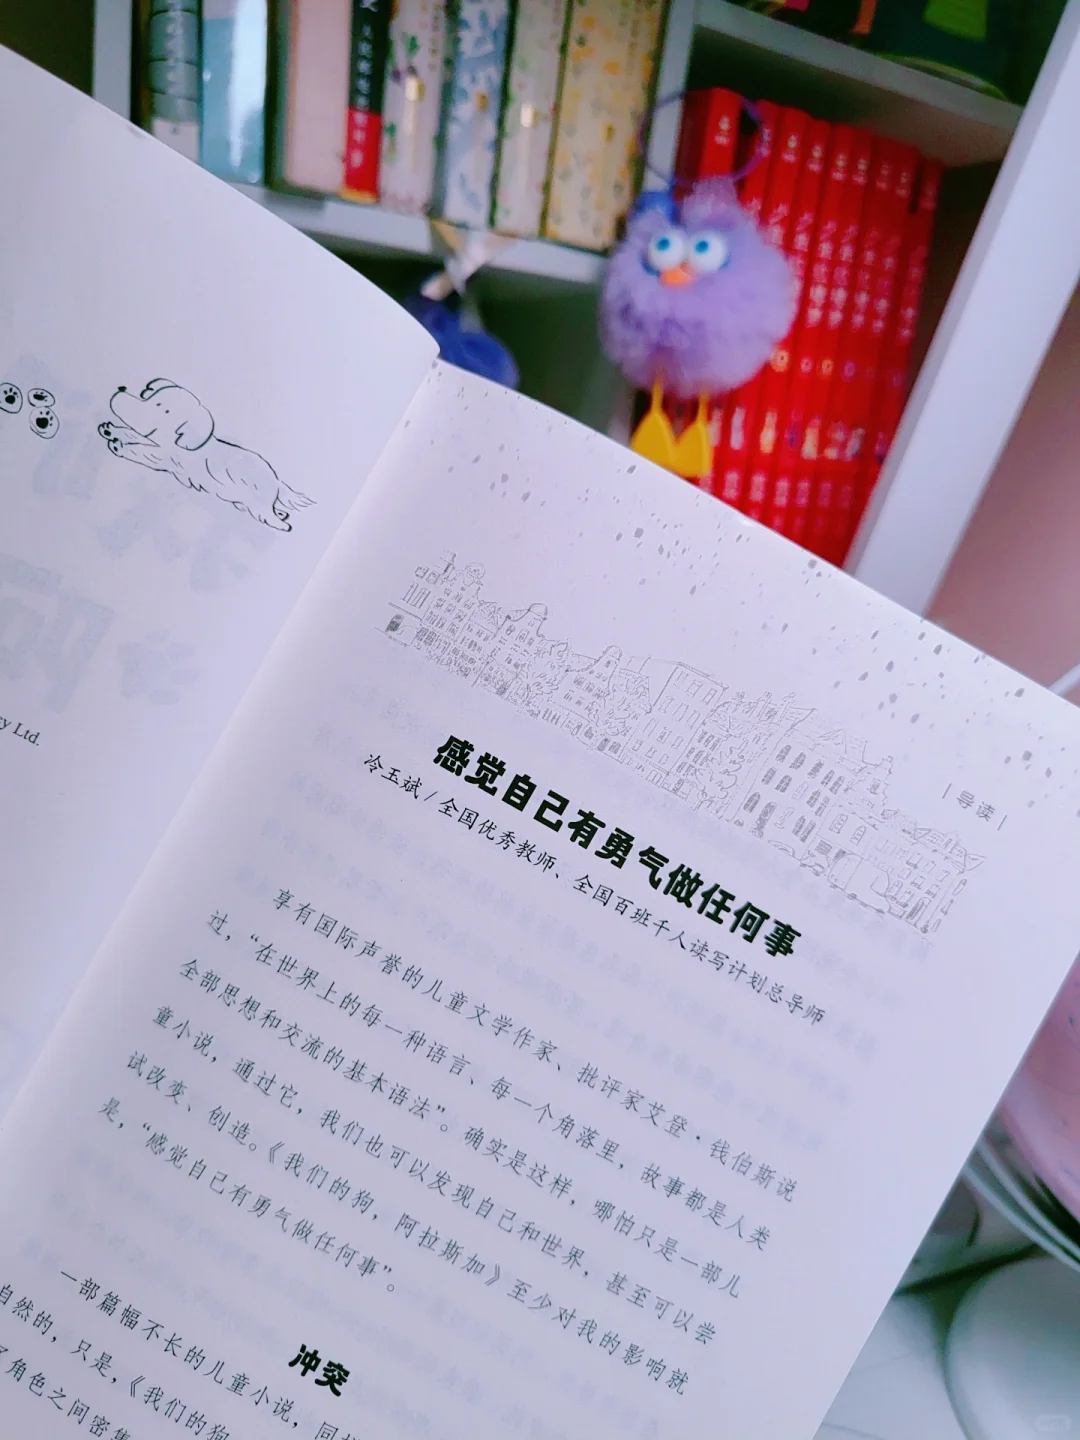 y Ltd.
| 导读 |
感觉自己有勇气做任何事
冷玉斌 / 全国优秀教师、全国百班千人读写计划总导师
享有国际声誉的儿童文学作家、批评家艾登·钱伯斯说
过，“在世界上的每一种语言、每一个角落里，故事都是人类
全部思想和交流的基本语法”。确实是这样，哪怕只是一部儿
童小说，通过它，我们也可以发现自己和世界，甚至可以尝
试改变、创造。《我们的狗，阿拉斯加》至少对我的影响就
是，“感觉自己有勇气做任何事”。
冲突
一部篇幅不长的儿童小说，同
自然的，只是，《我们的狗
角色之间密集